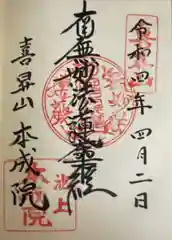 令和四年四月二日
南無妙法蓮華経
喜昇山 本成院
池上
本成院